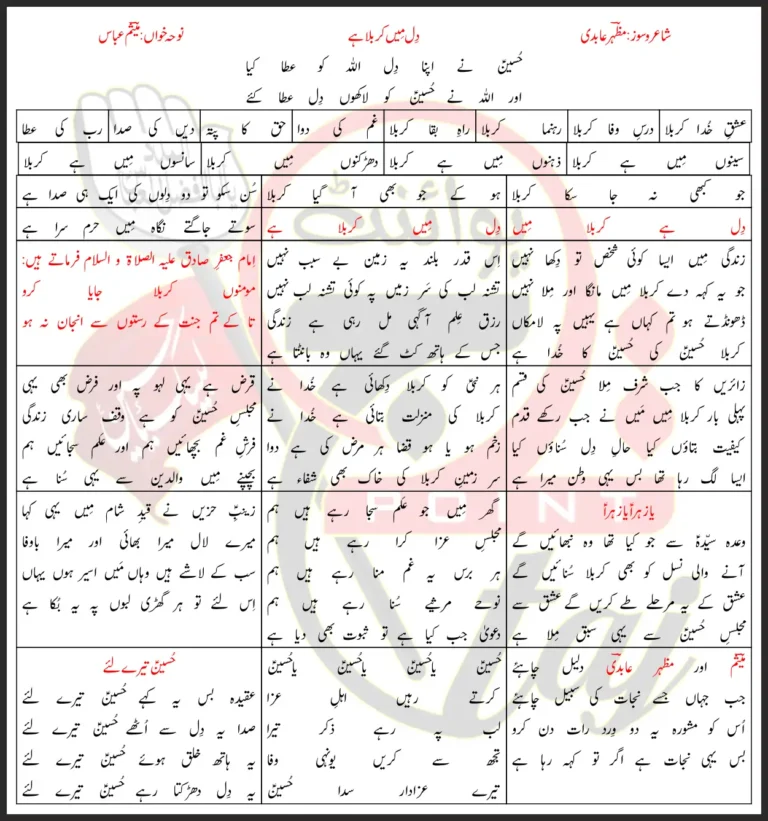 شاعر و سوز: مظہر عابدی
دِل مِیں کربلا ہے
نوحہ خواں: میثم عباس
حُسینؑ نے اپنا دِل اللہ کو عطا کیا
اور اللہ نے حُسینؑ کو لاکھوں دِل عطا کئے
عشقِ خُدا کربلا
درسِ وفا کربلا
رہنما کربلا
راہِ بقا کربلا
غم کی دوا
حق کا پتہ
دیں کی صدا
رب کی عطا
سینوں مِیں ہے کربلا
ذہنوں مِیں ہے کربلا
دھڑکنوں مِیں کربلا
سانسوں مِیں ہے کربلا
جو کبھی نہ جا سکا کربلا
ہو کے جو بھی آ گیا کربلا
سُن سکو تو دو دِلوں کی ایک ہی صدا ہے
دِل ہے کربلا مِیں
دِل مِیں کربلا ہے
سوتے جاگتے نگاہ مِیں حرم سرا ہے
زندگی مِیں ایسا کوئی شخص تو دِکھا نہیں
جو یہ کہہ دے کربلا مِیں مانگا اور مِلا نہیں
ڈھونڈتے ہو تم کہاں ہے یہیں پہ لامکاں
کربلا حُسینؑ کی حُسینؑ کا خُدا ہے
اِس قدر بلند یہ زمین بے سبب نہیں
تشنہ لب کی سَر زمیں پہ کوئی تشنہ لب نہیں
رزق عِلم آگہی مل رہی ہے زندگی
جس کے ہاتھ کٹ گئے یہاں وہ بانٹتا ہے
اِمام جعفرِ صادق علیہ الصلاۃ و السلام فرماتے ہیں:
مومنوں کربلا جایا کرو
تا کے تم جنت کے رستوں سے انجان نہ ہو
زائریں کا جب شرف مِلا حُسینؑ کی قسم
پہلی بار کربلا مِیں مَیں نے جب رکھے قدم
کیفیت بتاؤں کیا حالِ دِل سُناؤں کیا
ایسا لگ رہا تھا بس یہی وطن میرا ہے
ہر نحق کو کربلا دِکھائی ہے خُدا نے
کربلا کی منزلت بتائی ہے خُدا نے
زخم ہو یا ہو قضا ہر مرض کی ہے دوا
سر زمینِ کربلا کی خاک بھی شفاء ہے
قرض ہے یہی لہو پہ اور فرض بھی یہی
مجلسِ حُسینؑ کو ہے وقف ساری زندگی
فرشِ غم بچھائیں ہم اور عَلم سجائیں ہم
بچپنے مِیں والدین سے یہی سُنا ہے
یا زہراؑ یا زہراؑ
وعدہ سیّدہؑ سے جو کیا تھا وہ نبھائیں گے
آنے والی نسل کو بھی کربلا سُنائیں گے
عشق کے یہ مرحلے طے کریں گے عشق سے
مجلسِ حُسینؑ سے یہی سبق مِلا ہے
گھر مِیں جو عَلم سجا رہے ہیں ہم
مجلسِ عزا کرا رہے ہیں ہم
ہر برس یہ غم منا رہے ہیں ہم
نوحے مرثیے سُنا رہے ہیں ہم
دعویٰ جب کیا ہے تو ثبوت بھی دیا ہے
زینبِؑ حزیں نے قیدِ شام مِیں یہی کہا
میرے لال میرا بھائی اور میرا باوفا
سب کے لاشے ہیں وہاں مَیں اسیر ہوں یہاں
اِس لئے تو ہر گھڑی لبوں پہ یہ بُکا ہے
میثم اور مظہر عابدی دلیل چاہئے
جب جہاں جسے نجات کی سبیل چاہئے
اُس کو مشورہ یہ دو وِرد رات دن کرو
بس یہی نجات ہے اگر تو کہہ رہا ہے
حُسینؑ یاحُسینؑ یاحُسینؑ یاحُسینؑ
کرتے رہیں اہلِ عزا
لب پہ رہے ذکر تیرا
تجھ سے کریں یونہی وفا
تیرے عزادار سدا حُسینؑ
حُسینؑ تیرے لئے
عقیدہ بس یہ کہے حُسینؑ تیرے لئے
صدا یہ دِل سے اُٹھے حُسینؑ تیرے لئے
یہ ہاتھ خلق ہوئے حُسینؑ تیرے لئے
یہ دِل دھڑکتا رہے حُسینؑ تیرے لئے
پوائنٹ
POINT
taj